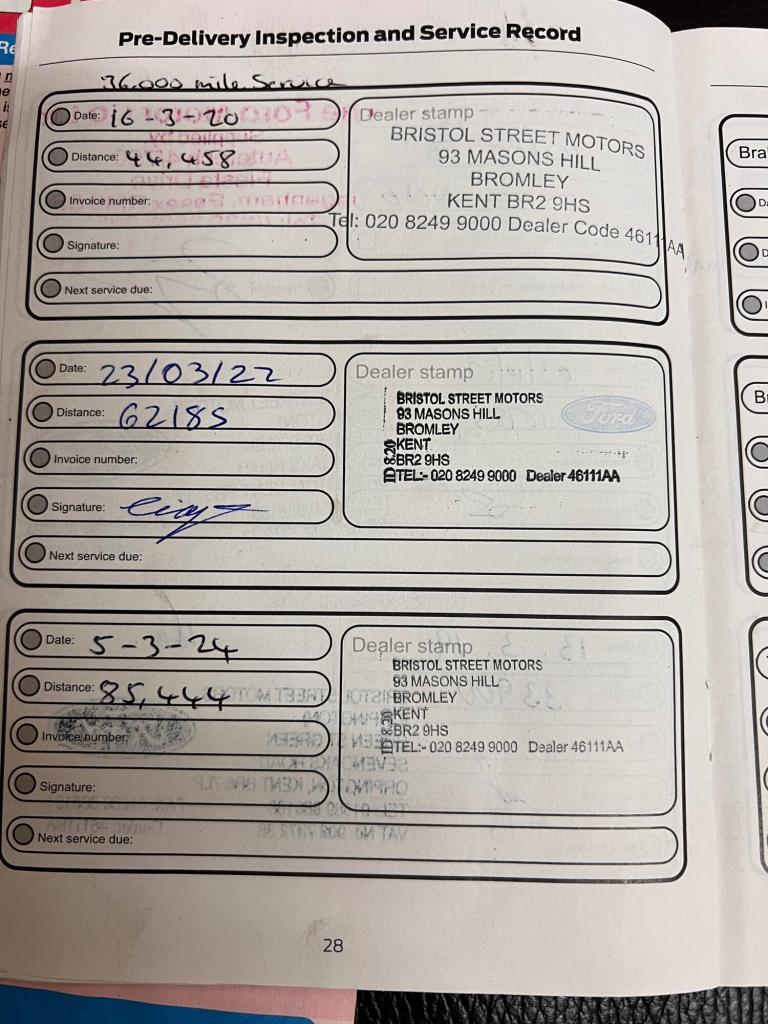 Pre-Delivery Inspection and Service Record
36.000 mile Service
Date: 16-3-20
Distance: 44,458
Invoice number:
Signature:
Next service due:
Dealer stamp
BRISTOL STREET MOTORS
93 MASONS HILL
BROMLEY
KENT BR2 9HS
Tel: 020 8249 9000 Dealer Code 46111AA
Date: 23/03/22
Distance: 62185
Invoice number:
Signature:
Next service due:
Dealer stamp
BRISTOL STREET MOTORS
93 MASONS HILL
BROMLEY
KENT
BR2 9HS
TEL:- 020 8249 9000 Dealer 46111AA
ID 8.20
Ford
Date: 5-3-24
Distance: 85,444
Invoice number:
Signature:
Next service due:
Dealer stamp
BRISTOL STREET MOTORS
93 MASONS HILL
BROMLEY
KENT
BR2 9HS
TEL:- 020 8249 9000 Dealer 46111AA
ID 8.20
28
Bra